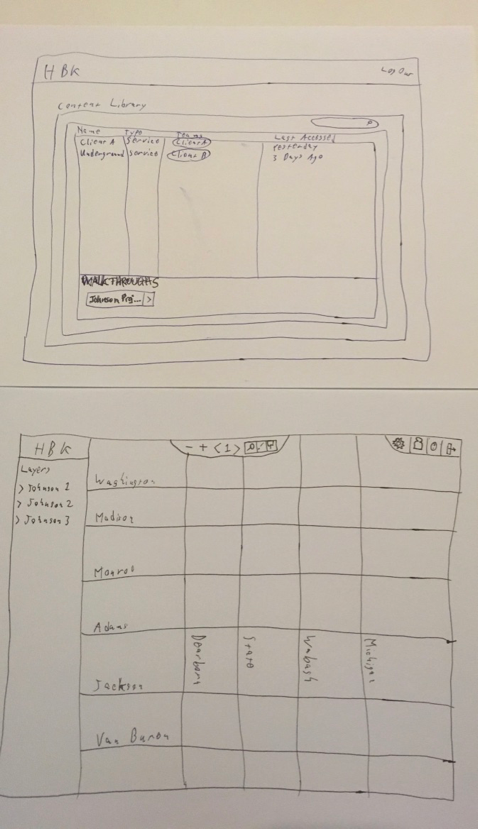 HBK
Log Out
Content Library
Name Type Teams Last Accessed
Client A Service Client A Yesterday
Underground Service Client B 3 Days Ago
WALKTHROUGHS
Johnson Proj... >
HBK
- + < 1 >
Layers
> Johnson 1
> Johnson 2
> Johnson 3
Washington
Madison
Monroe
Adams
Dearborn
State
Wabash
Michigan
Jackson
Van Buren